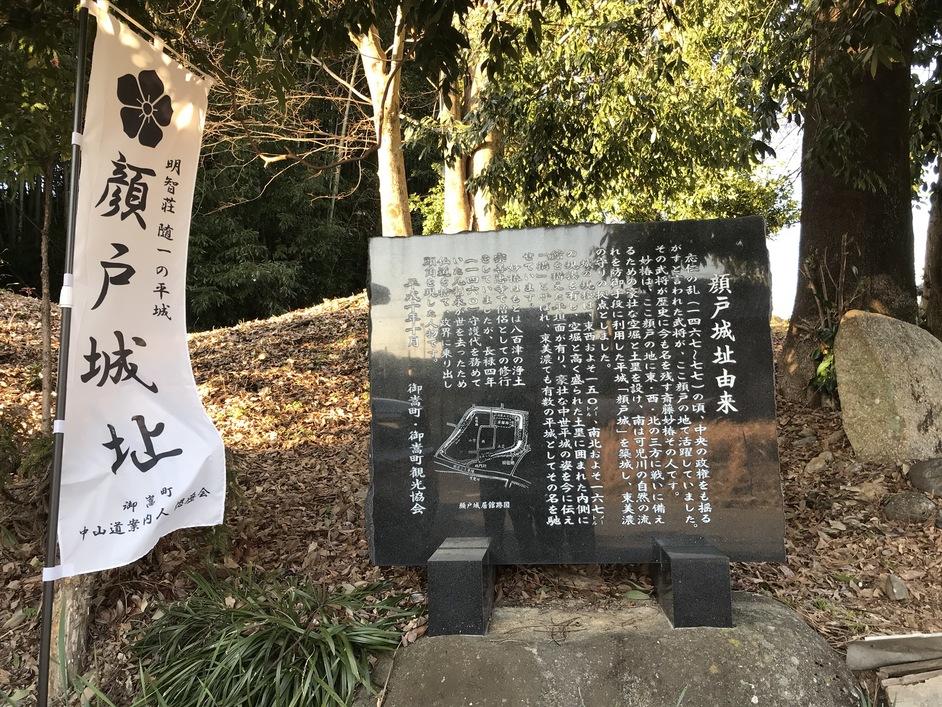 明智荘 随一の平城
顔戸城址
御嵩町
中山道案内人
顔戸城址由来
応仁の乱(一四六七~七七)の頃、中央の政権をも揺る
がすと言われた武将が、ここ顔戸の地で活躍していました。
その武将が歴史に今も名を残す斎藤妙椿その人です。
妙椿は、ここ顔戸の地に東・西・北の三方に戦いに備え
るための豪壮な空堀と土塁を設け、南は可児川の自然の流
れを防御手段に利用した平城「顔戸城」を築城し、東美濃
の守りの拠点としました。
東西およそ一五〇、南北およそ一六七
空堀と高く盛られた土塁に囲まれた内側に
面が有り、豪壮な中世平城の姿を今に伝え
東美濃でも有数の平城としてその名を馳
せています。
もとは八百津の浄土
僧侶としての修行
をしていましたが、長禄四年
(一四六〇)守護代を務めて
いた が世を去ったため
政界に乗り出し
平成十年十月
御嵩町・御嵩町観光協会
顔戸城居館跡図